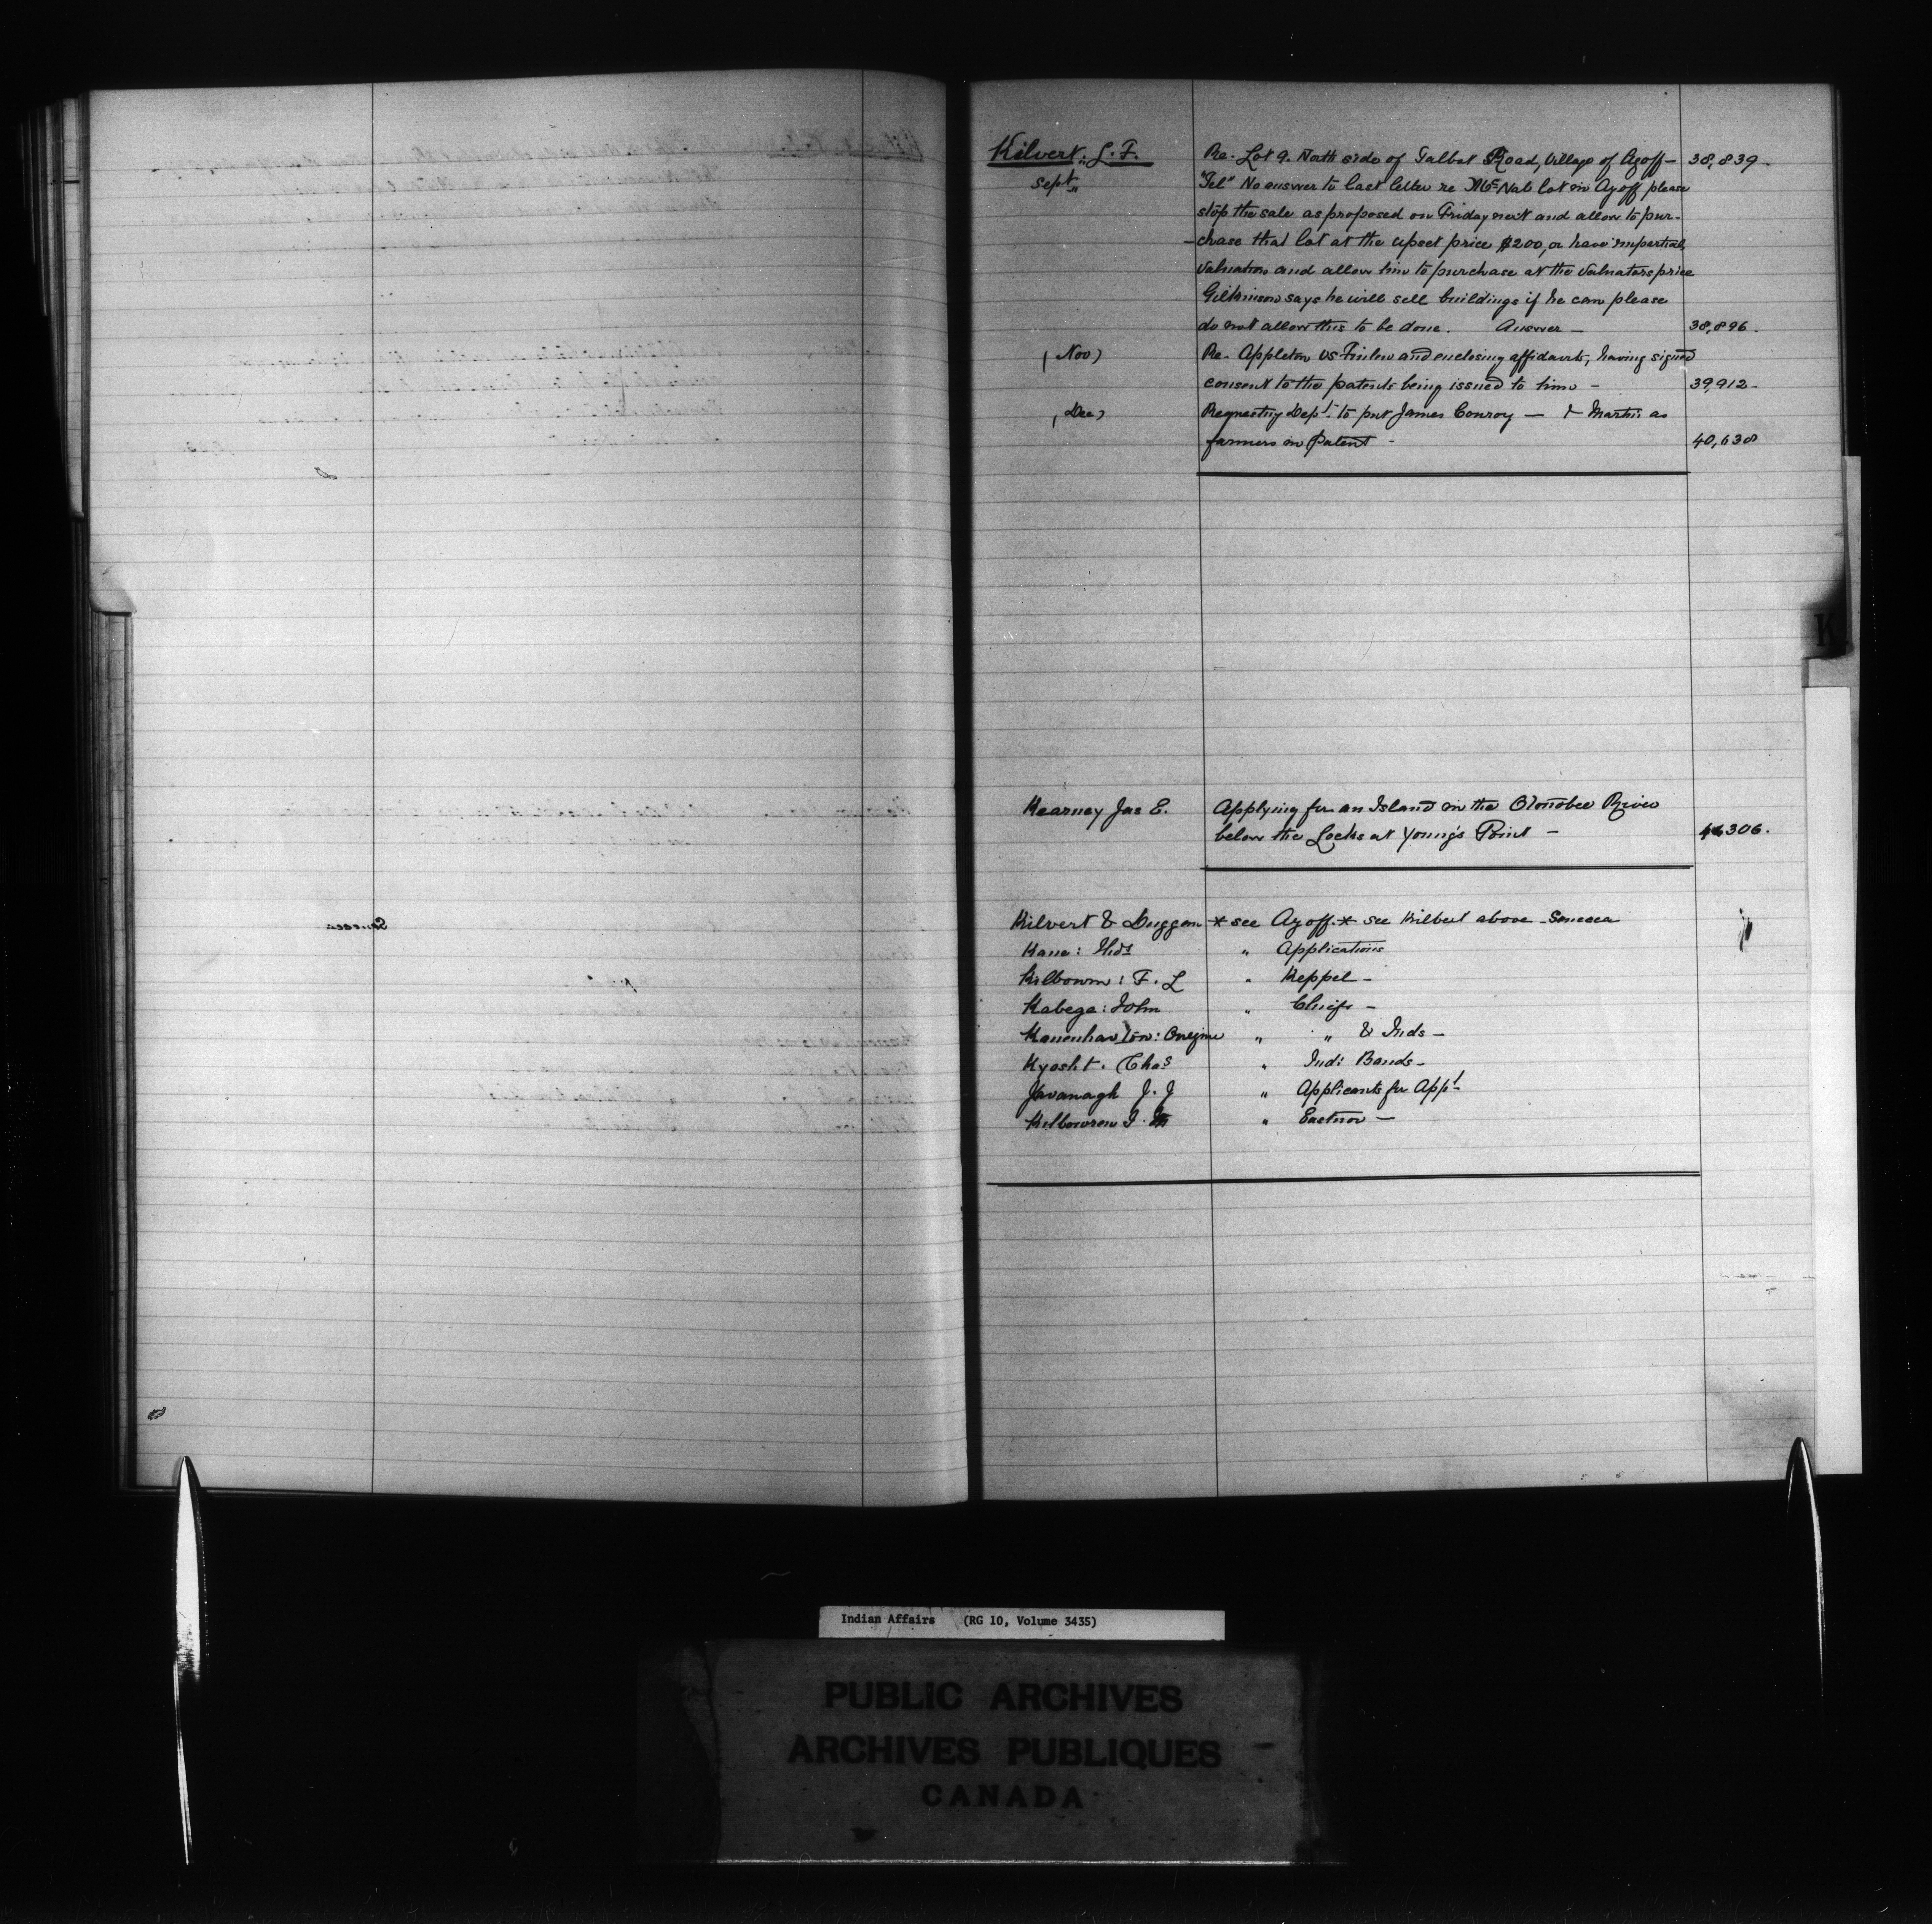 Kilvert: L. F. Re. Lot 9. North side of Talbot Road, Village of Azoff — 38,839 -
Sept " "Tel" No answer to last letter re McNab lot in Azoff please
stop the sale as proposed on Friday next and allow to pur-
-chase that lot at the upset price $200, or have impartial
valuation and allow him to purchase at the valuators price
Gilkinson says he will sell buildings if he can please
do not allow this to be done. Answer — 38,896.
(Nov) Re- Appleton vs Finlow and enclosing affidavits, having signed
consent to the patents being issued to him - 39,912-
(Dec) Requesting Dept. to put James Conroy — & Martin as
farmers in Patent - 40,638
Kearney Jas E. Applying for an Island in the Otonobee River
below the Locks at Young's Point — 306.
Kilvert & Duggan * see Azoff. * see Kilbert above Seneca
Kane: Thos " Applications
Kilbourn: F. L " Keppel -
Kabega: John " Chiefs -
" " & Inds -
Kyosht. Chas " Indi Bands -
Kavanagh J. J " Applicants for Appt -
Kilbourn " Eastnor —
K
Indian Affairs (RG 10, Volume 3435)
PUBLIC ARCHIVES
ARCHIVES PUBLIQUES
CANADA